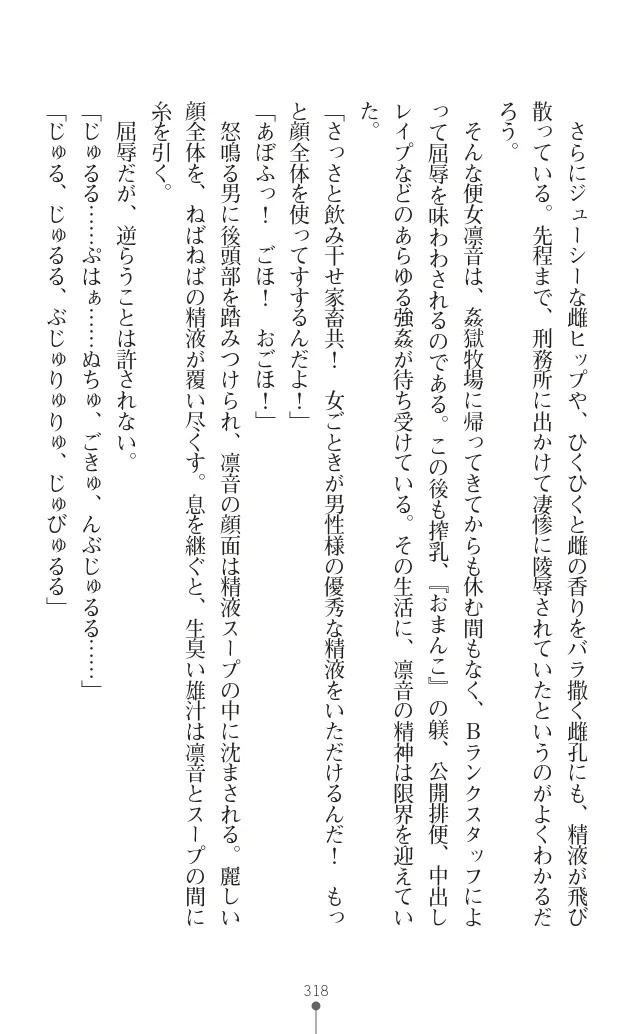 さらにジューシーな雌ヒップや、ひくひくと雌の香りをバラ撒く雌孔にも、精液が飛び
散っている。先程まで、刑務所に出かけて凄惨に陵辱されていたというのがよくわかるだ
ろう。
　そんな便女凛音は、姦獄牧場に帰ってきてからも休む間もなく、Ｂランクスタッフによ
って屈辱を味わわされるのである。この後も搾乳、『おまんこ』の躾、公開排便、中出し
レイプなどのあらゆる強姦が待ち受けている。その生活に、凛音の精神は限界を迎えてい
た。
「さっさと飲み干せ家畜共！　女ごときが男性様の優秀な精液をいただけるんだ！　もっ
と顔全体を使ってすするんだよ！」
「あぼふっ！　ごほ！　おごほ！」
　怒鳴る男に後頭部を踏みつけられ、凛音の顔面は精液スープの中に沈まされる。麗しい
顔全体を、ねばねばの精液が覆い尽くす。息を継ぐと、生臭い雄汁は凛音とスープの間に
糸を引く。
　屈辱だが、逆らうことは許されない。
「じゅるる……ぷはぁ……ぬちゅ、ごきゅ、んぶじゅるる……」
「じゅる、じゅるる、ぶじゅりゅりゅ、じゅびゅるる」
318